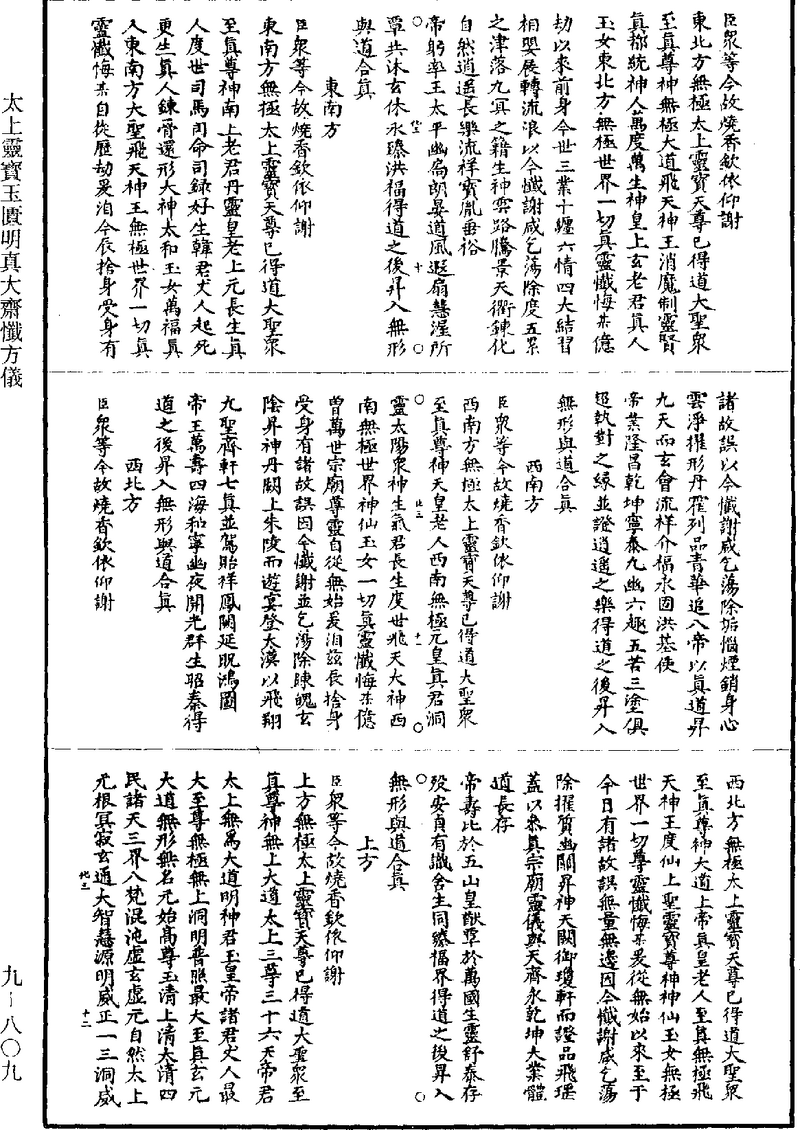 臣衆等今故燒香歸依仰謝
東北方無極太上靈寶天尊已得道大聖衆
至真尊神無極大道飛天神王消魔制靈賢
真都統神人萬度萬生神皇上玄老君真人
玉女東北方無極世界一切真靈懺悔某億
劫以來前身今世三業十纏六情四大結習
相嬰展轉流浪以今懺謝咸乞蕩除度五累
之津落九冥之籍生神雲路騰景天衢鍊化
自然逍遥長樂流祥寶胤垂裕
帝躬率王太平幽扃朗晏道風遐扇慧渥所
覃共沐玄休永臻洪福得道之後昇入無形
與道合真
東南方
臣衆等今故燒香歸依仰謝
東南方無極太上靈寶天尊已得道大聖衆
至真尊神南上老君丹靈皇老上元長生真
人度世司馬司命司録好生韓君丈人起死
更生真人鍊骨還形大神太和玉女萬福真
人東南方大聖飛天神王無極世界一切真
靈懺悔某自從歷劫爰洎今辰捨身受身有
諸故誤以今懺謝咸乞蕩除垢惱煙銷身心
雲淨擢形丹霍列品青華追八帝以真道昇
九天而玄會流祥介福永固洪基使
帝業隆昌乾坤寧泰九幽六趣五苦三塗俱
超執對之緣並證逍遥之樂得道之後昇入
無形與道合真
西南方
臣衆等今故燒香歸依仰謝
西南方無極太上靈寶天尊已得道大聖衆
至真尊神天皇老人西南無極元皇真君洞
靈太陽衆神生氣君長生度世飛天大神西
南無極世界神仙玉女一切真靈懺悔某億
曾萬世宗廟尊靈自從無始爰洎茲辰捨身
受身有諸故誤因今懺謝並乞蕩除踈魄玄
陰昇神丹闕上朱陵而遊宴登大漠以飛翔
九聖齊軒七真並駕貽祥鳳闕延貺鴻圖
帝王萬壽四海和寧幽夜開光群生昭泰得
道之後昇入無形與道合真
西北方
臣衆等今故燒香歸依仰謝
西北方無極太上靈寶天尊已得道大聖衆
至真尊神大道上帝真皇老人至真無極飛
天神王度仙上聖靈寶尊神神仙玉女無極
世界一切尊靈懺悔某爰從無始以來至于
今日有諸故誤無量無邊因今懺謝咸乞蕩
除擢質幽關昇神天闕御瓊軒而證品飛瑶
蓋以參真宗廟靈儀與天齊永乾坤大業體
道長存
帝壽比於五山皇猷覃於萬國生靈舒泰存
歿安貞有識含生同臻福界得道之後昇入
無形與道合真
上方
臣衆等今故燒香歸依仰謝
上方無極太上靈寶天尊已得道大聖衆至
真尊神無上大道太上三尊三十六天帝君
太上無爲大道明神君玉皇帝諸君丈人最
大至尊無極無上洞明普照最大至真玄元
大道無形無名元始高尊玉清上清太清四
民諸天三界八梵混沌虛玄虛元自然太上
元根冥寂玄通大智慧源明威正一三洞威
太上靈寶玉匱明真大齋懺方儀
九—八〇九